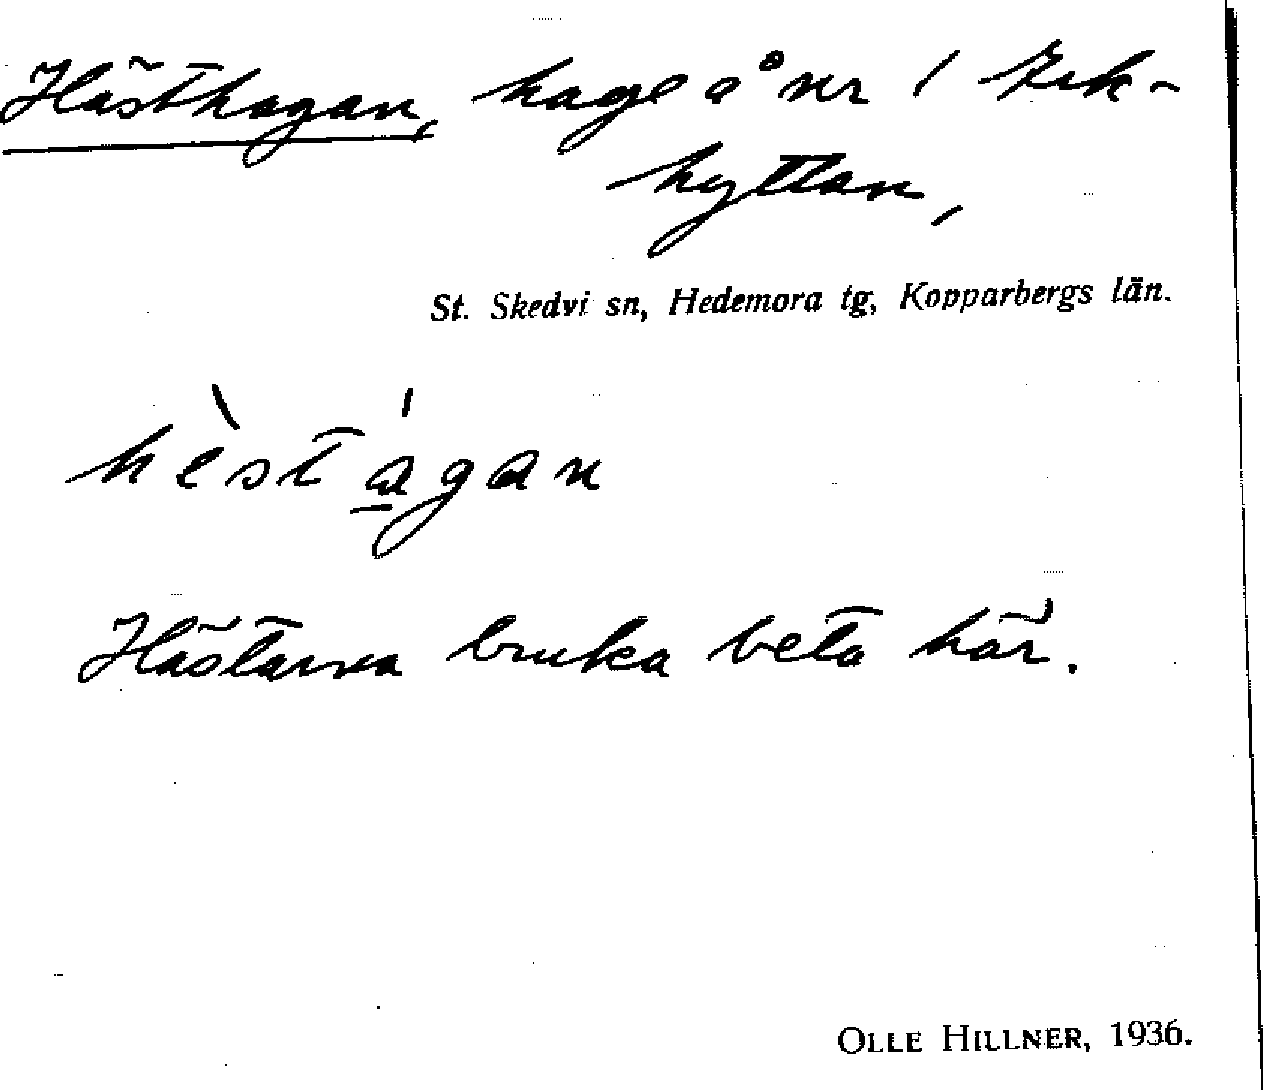 Hästhagan, hage å nr 1 Ark-
hyttan,
St. Skedvi sn, Hedemora tg, Kopparbergs län.
hὲstágan
Hästarna bruka beta här.
OLLE HILLNER, 1936.